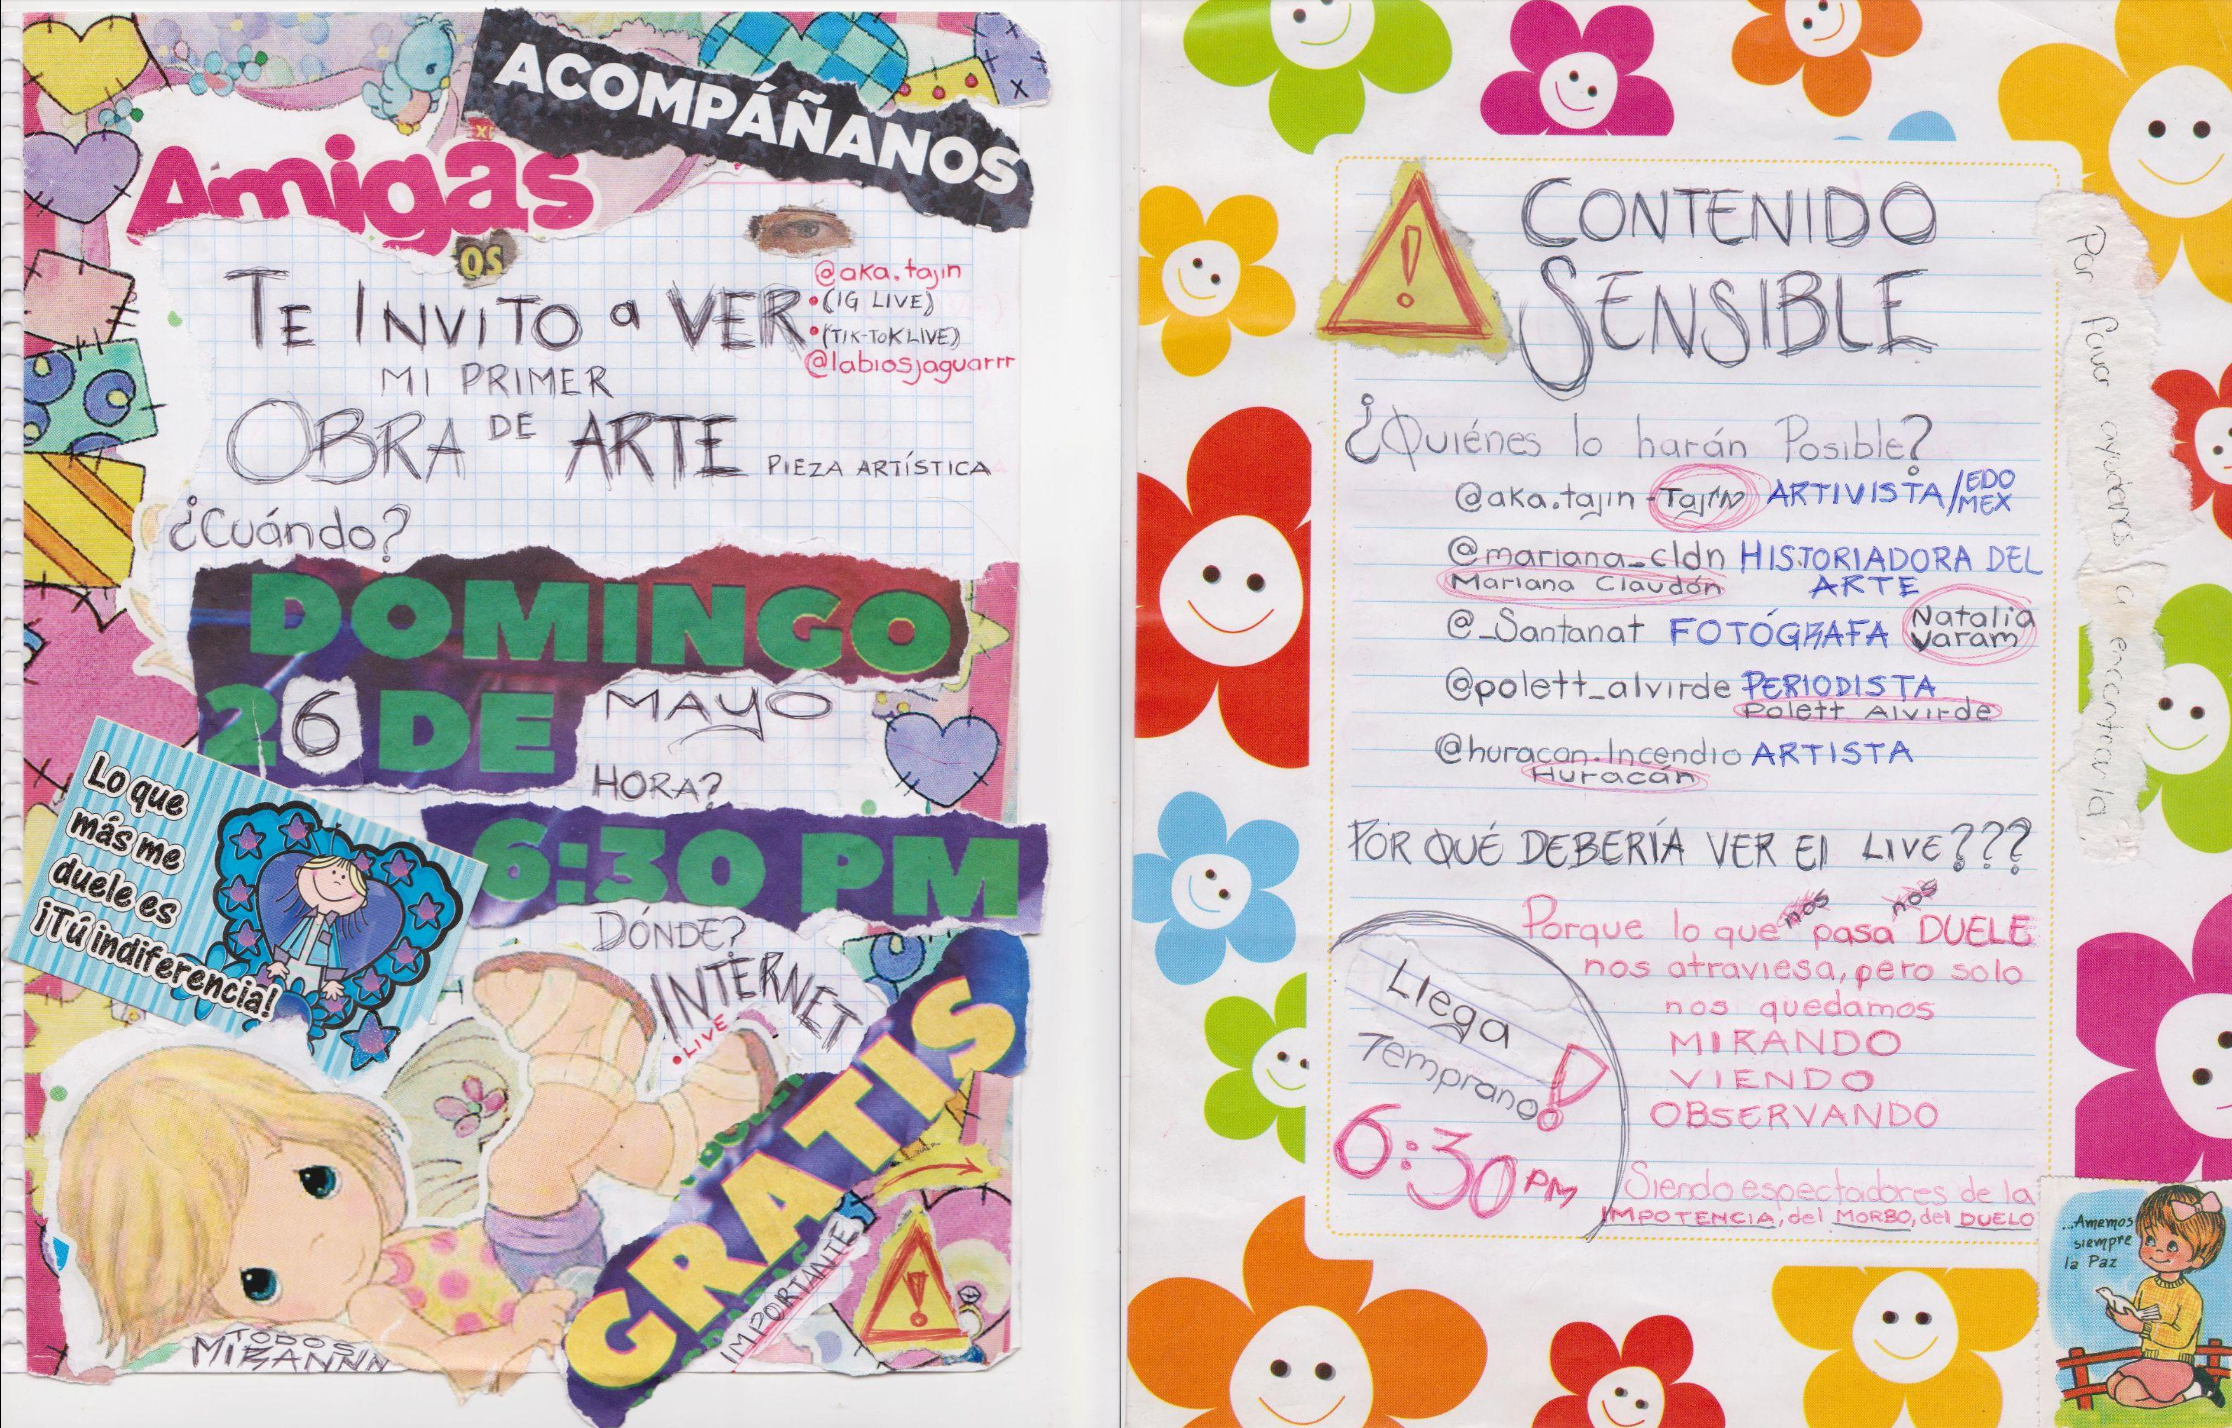 ACOMPÁÑANOS
Amigas
OS
TE INVITO a VER
@aka.tajin
•(IG LIVE)
•(TIK-TOK LIVE)
@labiosjaguarrr
MI PRIMER
OBRA DE ARTE PIEZA ARTÍSTICA
¿Cuándo?
DOMINGO
26 DE MAYO
HORA?
6:30 PM
Lo que
más me
duele es
¡Tú indiferencia!
DÓNDE?
INTERNET
•LIVE
GRATIS
IMPORTANTE
TODOS
MIRANNN
CONTENIDO
SENSIBLE
¿Quiénes lo harán Posible?
@aka.tajin - Tajín ARTIVISTA/EDO
MEX
@mariana_cldn HISTORIADORA DEL
Mariana Claudón ARTE
@_Santanat FOTÓGRAFA Natalia
Varam
@polett_alvirde PERIODISTA
Polett Alvirde
@huracan.Incendio ARTISTA
Huracán
POR QUÉ DEBERÍA VER El LIVE???
nos nos
Porque lo que pasa DUELE
nos atraviesa, pero solo
nos quedamos
MIRANDO
VIENDO
OBSERVANDO
Siendo espectadores de la
IMPOTENCIA, del MORBO, del DUELO
Llega
Temprano!
6:30 PM
Por favor ayúdenos a encontrarla,
...Amemos
siempre
la Paz